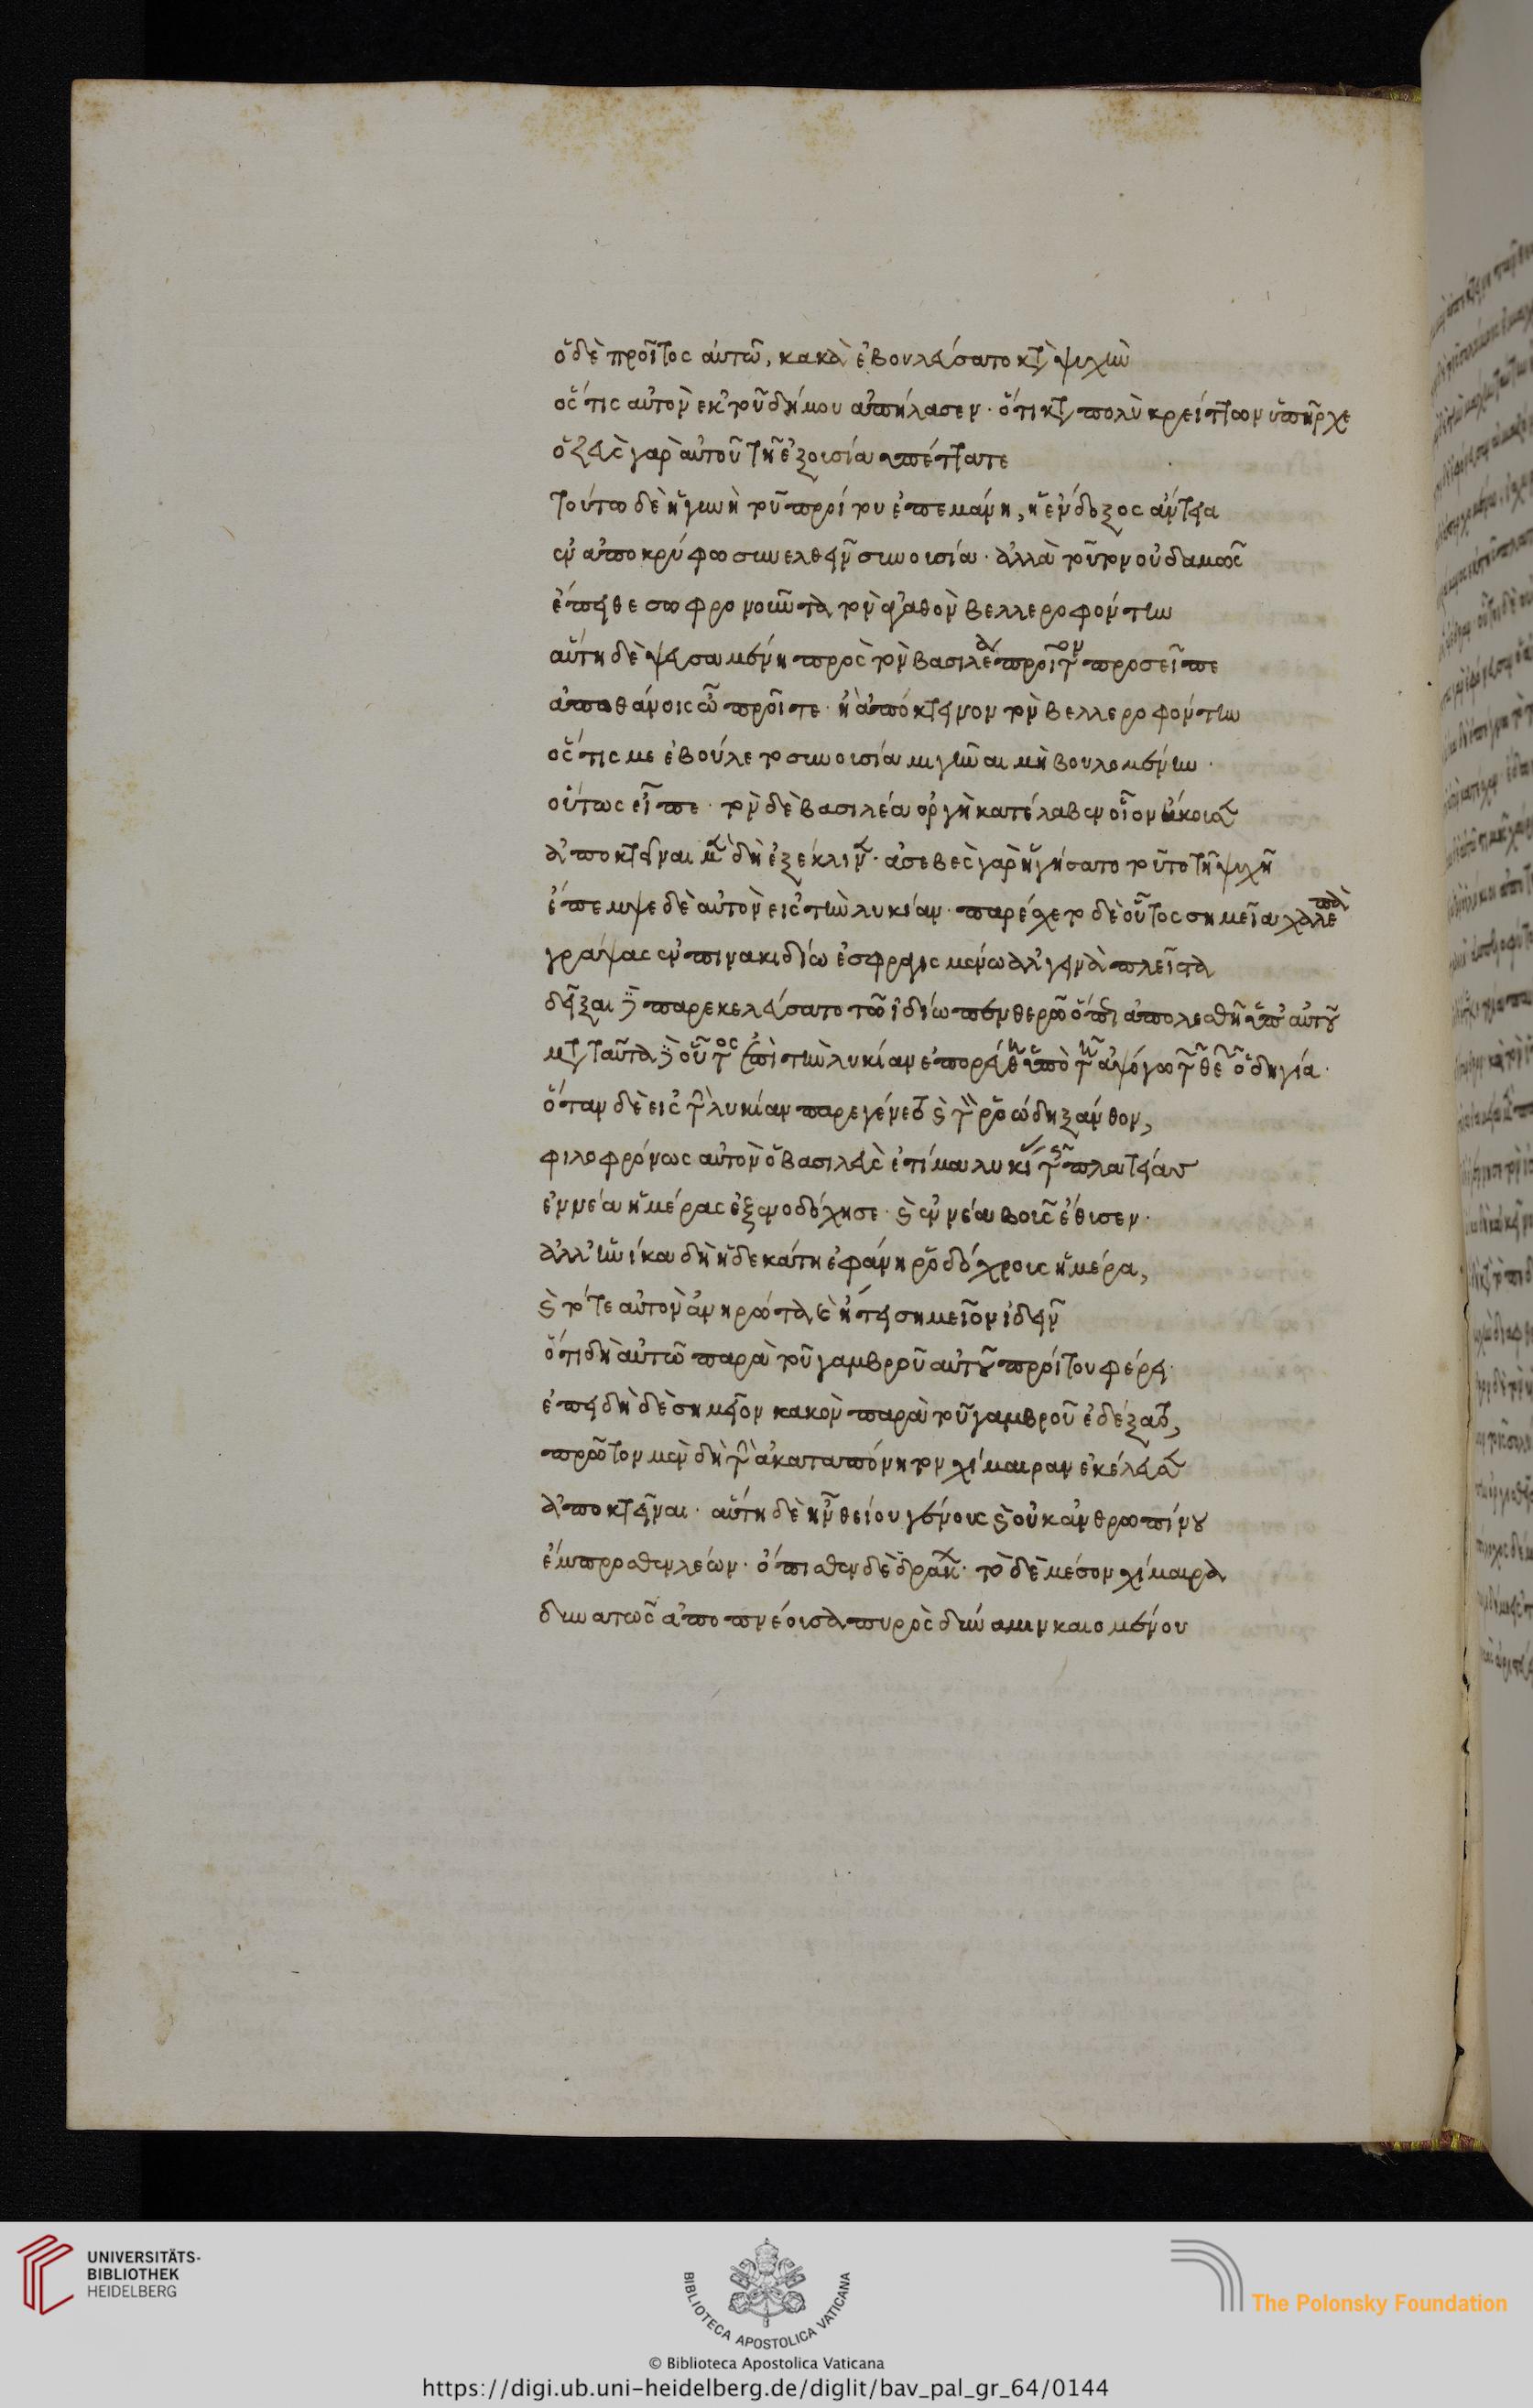 ὁ δὲ προῖτος αὐτῶ, κακὰ ἐβουλεύσατο κατὰ ψυχὴν
ὅστις αὐτὸν ἐκ τοῦ δήμου ἀπήλασεν· ὅτι κατὰ πολὺ κρείττων ὑπῆρχε
ὁ ζεὺς γὰρ αὐτοῦ τῆ ἐξουσία ὑπέταττε
τούτω δὲ ἡ γυνὴ τοῦ προίτου ἐπεμάνη, ἡ ἔνδοξος ἄντεια
ἐν ἀποκρύφω συνελθεῖν συνουσία· ἀλλὰ τοῦτον οὐδαμῶς
ἔπειθε σωφρονοῦντα τὸν ἀγαθὸν βελλεροφόντην
αὕτη δὲ ψευσαμένη πρὸς τὸν βασιλέα προῖτον προσεῖπε
ἀποθάνοις ὦ προῖτε· ἢ ἀπόκτεινον τὸν βελλεροφόντην
ὅστις με ἐβούλετο συνουσία μιγῆναι μὴ βουλομένην·
οὕτως εἶπε· τὸν δὲ βασιλέα ὀργὴ κατέλαβεν οἷον ἤκουσε
ἀποκτεῖναι μὲν δὴ ἐξέκλινεν· ἀσεβὲς γὰρ ἡγήσατο τοῦτο τῆ ψυχῆ
ἔπεμψε δὲ αὐτὸν εἰς τὴν λυκίαν· παρέχετο δὲ οὗτος σημεῖα χαλεπὰ
γράψας ἐν πινακιδίω ἐσφραγισμένω ἀλγεινὰ πλεῖστα
δεῖξαι δὲ παρεκελεύσατο τῶ ἰδίω πενθερῶ ὅπως ἀπολεσθῆ ὑπ' αὐτοῦ
μετὰ ταῦτα δὲ οὗτος ἐπὶ τὴν λυκίαν ἐπορεύθη ὑπὸ τῆ ἀψόγω τῶν θεῶν ὁδηγία·
ὅταν δὲ εἰς τὴν λυκίαν παρεγένετο καὶ τὸν ῥοώδη ξάνθον,
φιλοφρόνως αὐτὸν ὁ βασιλεὺς ἐτίμα λυκίας τῆς πλατείας
ἐννέα ἡμέρας ἐξενοδόχησε· καὶ ἐννέα βοῦς ἔθυσεν·
ἀλλ' ἡνίκα δὴ ἡ δεκάτη ἐφάνη ῥοδόχρους ἡμέρα,
καὶ τότε αὐτὸν ἀνηρώτα καὶ ἤτει σημεῖον ἰδεῖν
ὅτι δὴ αὐτῶ παρὰ τοῦ γαμβροῦ αὐτοῦ προίτου φέρει·
ἐπειδὴ δὲ σημεῖον κακὸν παρὰ τοῦ γαμβροῦ ἐδέξατο,
πρῶτον μὲν δὴ τὴν ἀκαταπόνητον χίμαιραν ἐκέλευσε
ἀποκτεῖναι· αὕτη δὲ ἦν θείου γένους καὶ οὐκ ἀνθρωπίνου
ἔμπροσθεν λέων· ὄπισθεν δὲ δράκων· τὸ δὲ μέσον χίμαιρα
δυνατῶς ἀποπνέουσα πυρὸς δύναμιν καιομένου
UNIVERSITÄTS-
BIBLIOTHEK
HEIDELBERG
BIBLIOTECA APOSTOLICA VATICANA
The Polonsky Foundation
© Biblioteca Apostolica Vaticana
https://digi.ub.uni-heidelberg.de/diglit/bav_pal_gr_64/0144